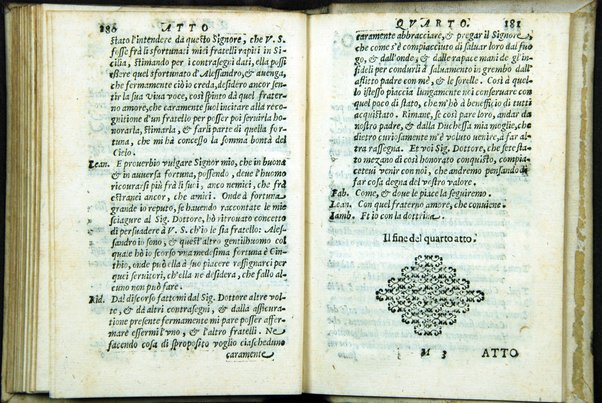 180 ATTO
stato l'intendere da questo Signore, che V. S.
fosse frà li sfortunati miei fratelli rapiti in Si-
cilia, stimando per i contrasegni dati, ella possi
essere quel sfortunato d'Alessandro, & auenga,
che fermamente ciò io creda, desidero ancor sen-
tir la sua viua voce, così spinto dà quel frater-
no amore, che caramente suol incitare alla recog-
nitione d'un fratello per posser poi seruirla ho-
norarla, stimarla, & farli parte di quella for-
tuna, che mi hà concesso la somma bontà del
Cielo.
Lean. E prouerbio vulgare Signor mio, che in buona
& in auuersa fortuna, possendo, deue l'huomo
ricourarsi più frà li suoi, anco nemici, che frà
estranei ancor, che amici. Onde à fortuna
grande io reputo, se hauendo raccontate le mie
sciagure al Sig. Dottore, hò ritrouato concetto
di persuadere à V. S. ch'io le sia fratello: Ales-
sandro io sono, & quest'altro gentilhuomo col
quale hò io scorso vna medesima fortuna è Cin-
thio, onde potrà ella à suo piacere rassignarci per
quei seruitori, ch'ella ne desidera, che fallo al-
cuno non può fare.
Rid. Dal discorso fattomi dal Sig. Dottore altre vol-
te, & dà altri contrasegni, & dalla assicuratione
presente fermamente mi pare posser affer-
mare essermi l'vno, & l'altro fratelli. Ne
facendo cosa di sproposito voglio ciascheduno
caramente
QVARTO. 181
caramente abbracciare, & pregar il Signore,
che come s'è compiacciuto di saluar loro dal fuo-
go, & dall'onde, & dalle rapace mani de gl'in-
fideli per condurli à saluamento in grembo dell'
afflitto padre con mè, & le sorelle. Così à quel-
lo istesso piaccia lungamente ni conseruare con
quel poco di stato, che m'hò à beneficio di tutti
acquistato. Rimane, se così pare loro, andar da
nostro padre, & dalla Duchessa mia moglie, che
dietro curiosamente m'è voluto venire, à far al-
tra rassegna. Et voi Sig. Dottore, che sete sta-
to mezano di così honorato conquisto, compia-
ceteui venir con noi, che andremo pensando di
far cosa degna del vostro valore.
Fab. Come, & doue le piace la seguiremo.
Lean. Con quel fraterno amore, che conuiene.
Iamb. Et io con la dottrina.
Il fine del quarto atto.
M 3 ATTO